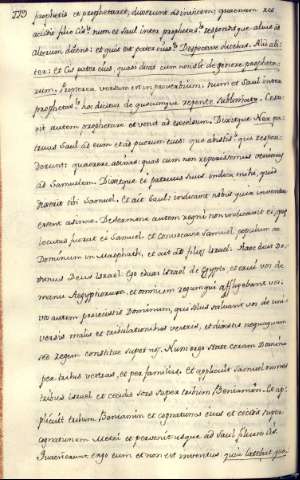 770 prophetis et prophetaret, dixerunt ad invicem; quaenam res
accidit filio Cis? num et Saul inter prophetas? respondit que alius ad
alterum dicens: et quis est pater eius? Propterea
versum est in proverbium: num et Saul inter
prophetas?
autem prophetare et venit ad excelsum. Dixitque
patruus Saul ad eum et ad puerum eius: quo abistis? qui respon-
derunt: quaerere asinas: quas cum non reperissemus venimus
ad Samuelem. Dixitque ei patruus suus: indica mihi, quid
dixerit tibi Samuel. Et ait Saul: indicavit nobis quia inventae
essent asinae. De sermone autem regni non indicavit ei, quem
locutus fuerat ei Samuel. Et convocavit Samuel populum ad
Dominum in Masphath, et ait ad filios Israel. Haec dicit Do-
minus Deus Israel. Ego eduxi Israel de Egypto, et erui vos de
manu Aegyptiorum, et omnium regum qui affligebant vos.
vos autem proiecistis Dominum, qui solus salvavit vos de uni-
versis malis et tribulationibus vestris, et dixistis nequaquam
sed regem constitue super nos. Nunc ergo state coram Domino
per tribus vestras, et per familias, et applicuit Samuel omnes
tribus Israel et cecidit sors super tribum Beniamin. Et ap-
plicuit tribum Beniamin et cognationes eius et cecidit super
cognationem Metri et pervenit usque ad Saul filium Cis.
Quaesierunt ergo eum et non est inventus